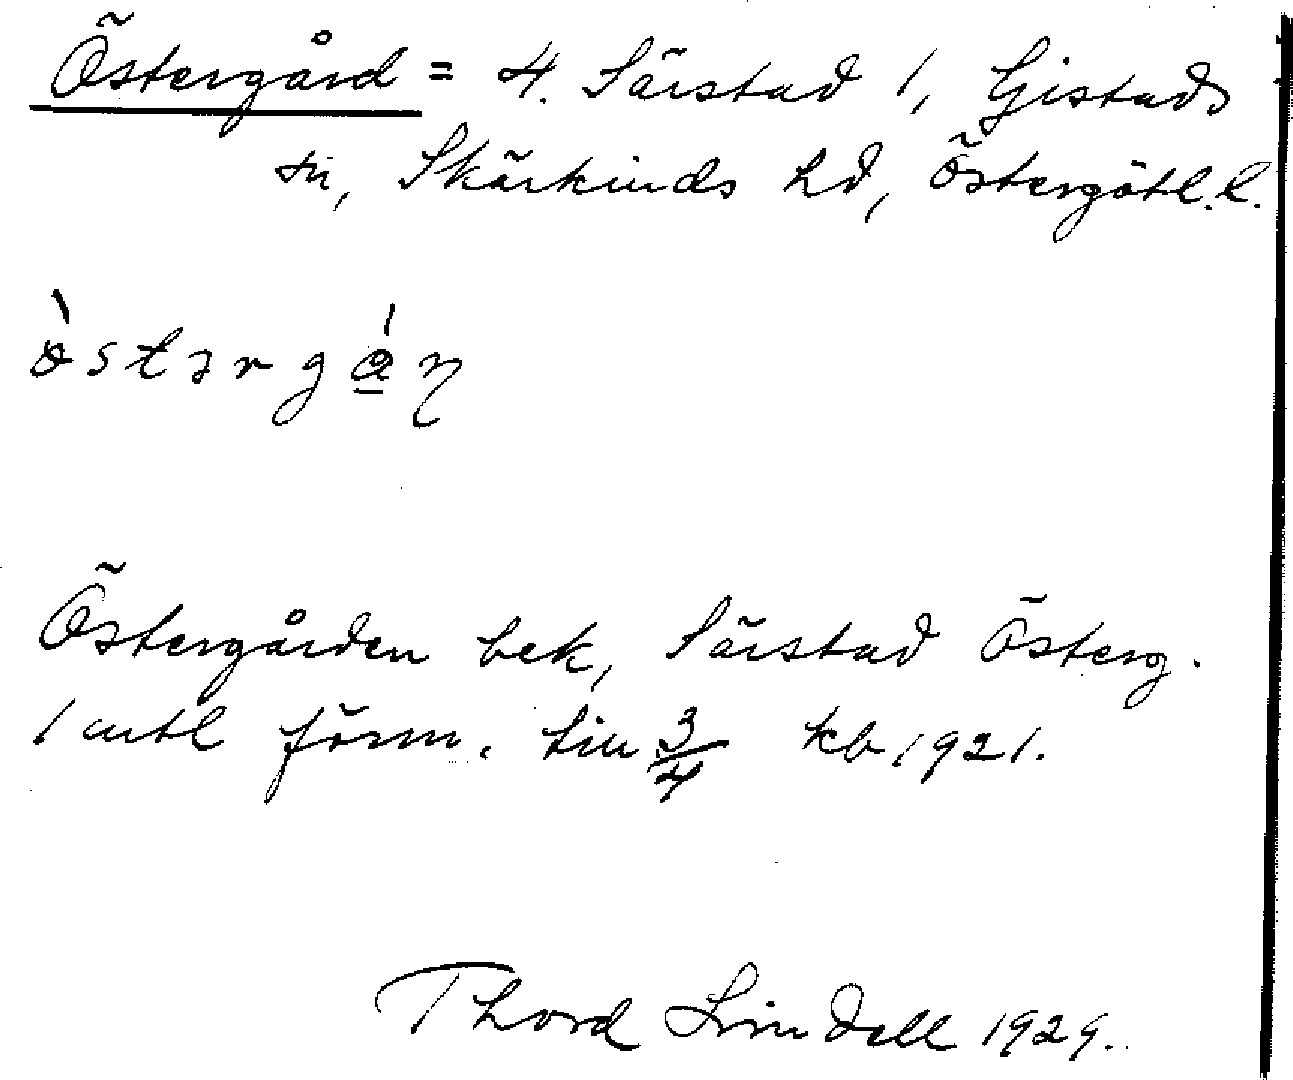 Östergård = 4. Särstad 1, Gistads
sn, Skärkinds hd, Östergötl.l.
ø̀stərgǻɳ
Östergården bek, Särstad Österg.
1 mtl förm. till 3/4 kb 1921.
Thord Lindell 1929.